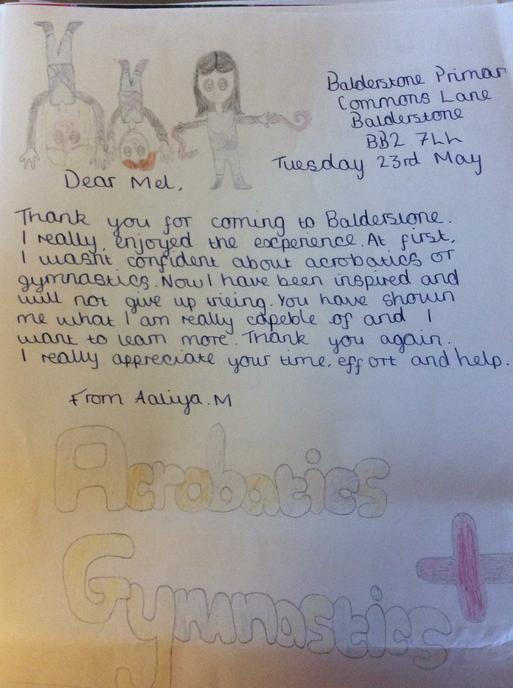 Balderstone Primar
Commons Lane
Balderstone
BB2 7LL
Tuesday 23rd May
Dear Mel,
Thank you for coming to Balderstone.
I really enjoyed the excperence. At first,
I wasnt confident about acrobatics or
gymnastics. Now I have been inspired and
will not give up trieing. You have shown
me what I am really capeble of and I
want to learn more. Thank you again.
I really appreciate your time, effort and help.
From Aaliya.M
Acrobatics
+
Gymnastics